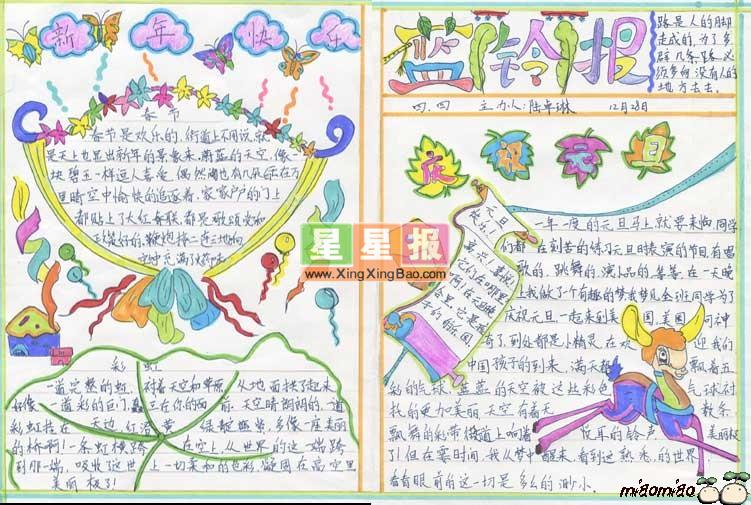 新年快乐
春节
春节是欢乐的,街道上不用说,就
是天上也显出新年的景象来,蔚蓝的天空,像一
块碧玉一样逗人喜爱,偶然间也有几朵 在万
里晴空中愉快的追逐着,家家户户的门上
都贴上了大红春联,都是歌颂党和
的,鞭炮
彩虹
一道完整的虹,衬着天空和草原从地面拱了起来
好像一道彩的巨门,矗立在你的面前,天空晴朗朗的,道
彩虹挂在天边,红橙黄绿靛蓝紫,多像一座美丽
的桥啊!一条虹横跨在空上,从世界的这一端跨
到那一端,吸收了这世上一切柔和的色彩,凝固在高空里
美丽极了!
蓝铃报
路是人的脚
走成的,为了多
群几条路,必
须多向没有人的
地方去走。
四.四 主办人:陆卓琳 12月28日
庆祝元旦
元旦
快乐!
一年一度的元旦马上就要来临,同学
们都在刻苦的练习元旦时表演的节目,有唱
歌的,跳舞的,演小品的,等等,在一天晚
上我做了个有趣的梦,我梦见全班同学为了
庆祝元旦一起来到美国,美国
有了,到处都是小精灵在欢迎我们
中国孩子的到来,满天都飘着五
彩的气球,蓝蓝的天空被这些彩色气球衬
托的更加美丽,天空有着无数条
飘舞的彩带,街道上响着悦耳的铃声,美丽极
了!但在霎时间,我从梦中醒来,看到这熟悉的世界
看着眼前的这一切是多么的渺小。
星星报
www.XingXingBao.com
miaomiao